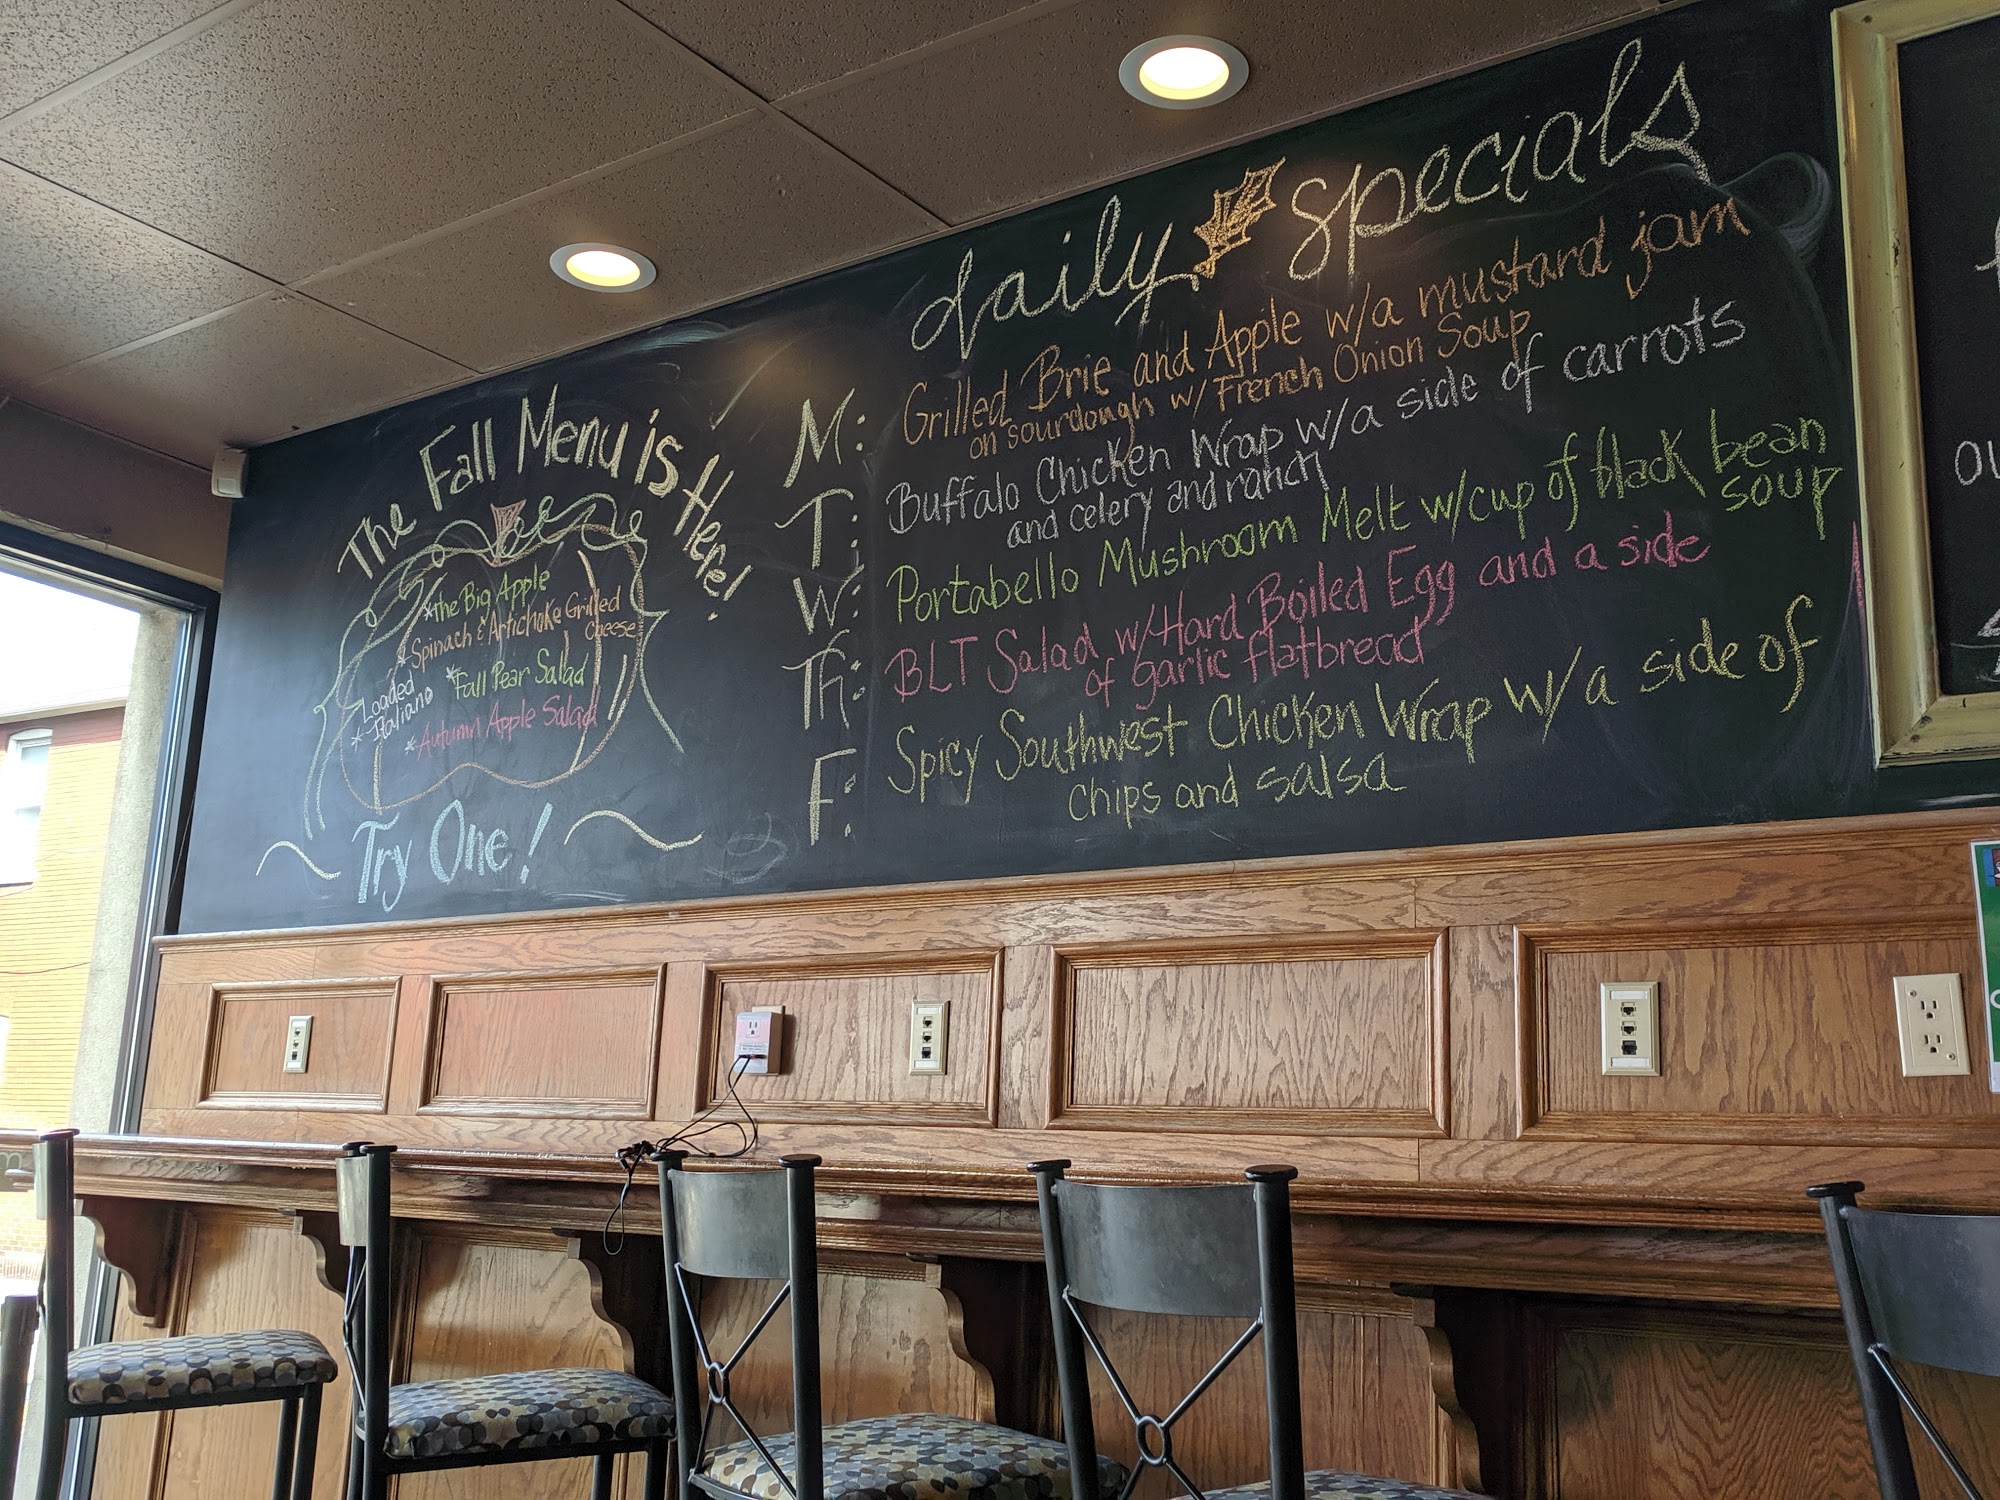 The Fall Menu is Here!
*The Big Apple
*Spinach & Artichoke Grilled
Cheese
*Fall Pear Salad
*Loaded
Italiano
*Autumn Apple Salad
Try One!
daily specials
M: Grilled Brie and Apple w/a mustard jam
on sourdough w/ French Onion Soup
T: Buffalo Chicken Wrap w/a side of carrots
and celery and ranch
W: Portabello Mushroom Melt w/cup of black bean
soup
Th: BLT Salad w/Hard Boiled Egg and a side
of garlic flatbread
F: Spicy Southwest Chicken Wrap w/a side of
chips and salsa
ou